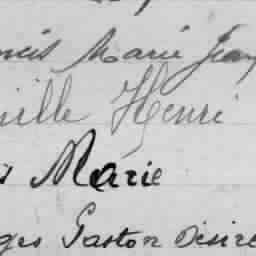 ncis Marie Jean
ville Henri
s Marie
ges Gaston Désiré